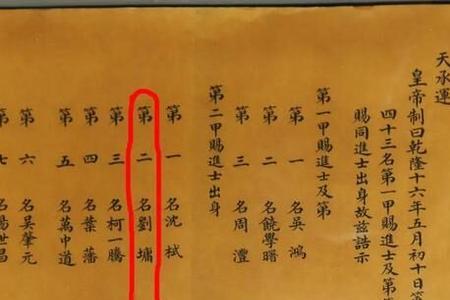 天承運
皇帝制曰乾隆十六年五月初十日
四十三名第一甲賜進士及第
賜同進士出身故茲誥示
第一甲賜進士及第
第一名吳鴻
第二名饒學曙
第三名周澧
第二甲賜進士出身
第一名沈栻
第二名劉墉
第三名柯一騰
第四名葉藩
第五名萬中道
第六名吳肇元
七名楊世昌